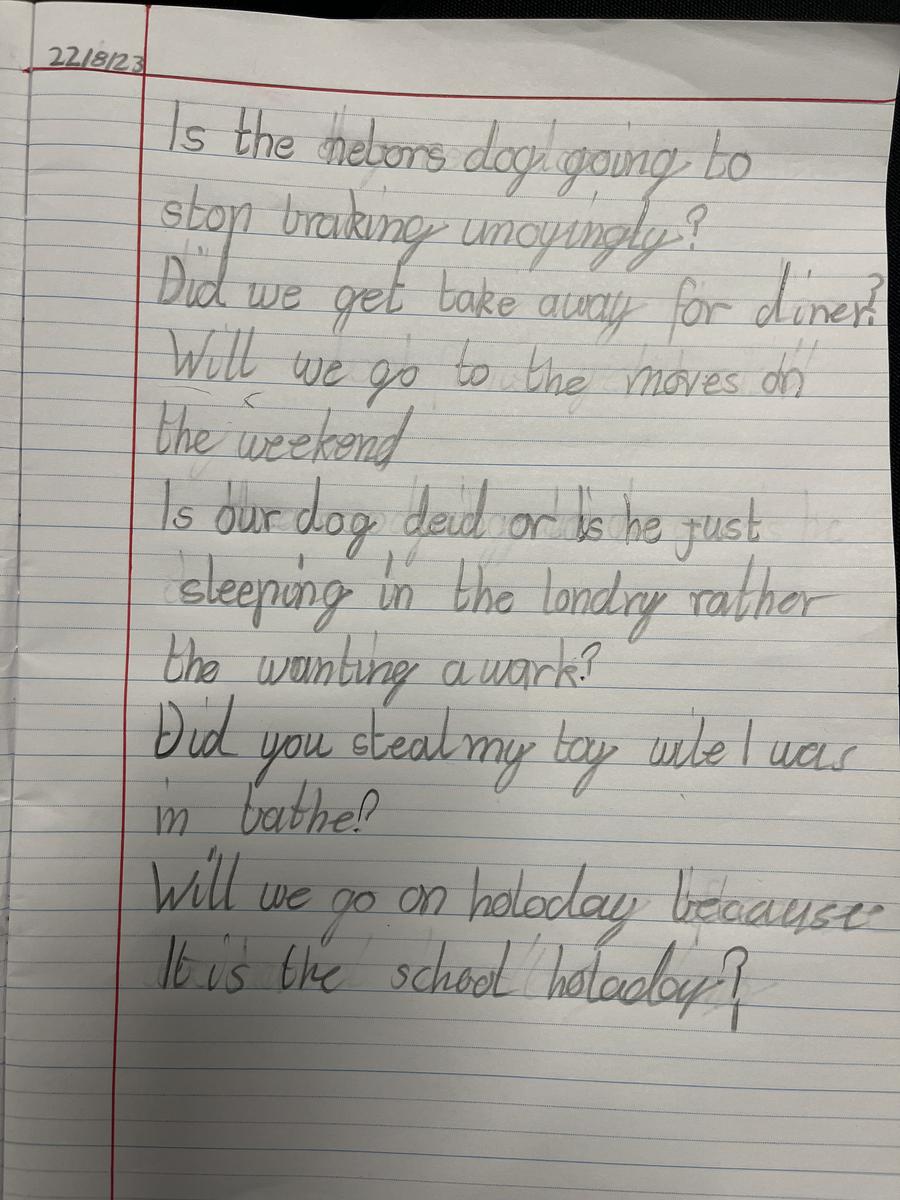 22/8/23
Is the nebors dog going to
stop braking unoyingly?
Did we get take away for diner?
Will we go to the moves on
the weekend
Is our dog deid or is he just
sleeping in the londry rather
the wanting a wark?
Did you steal my toy wile I was
in bathe?
Will we go on holoday becauuse
It is the school holaday?